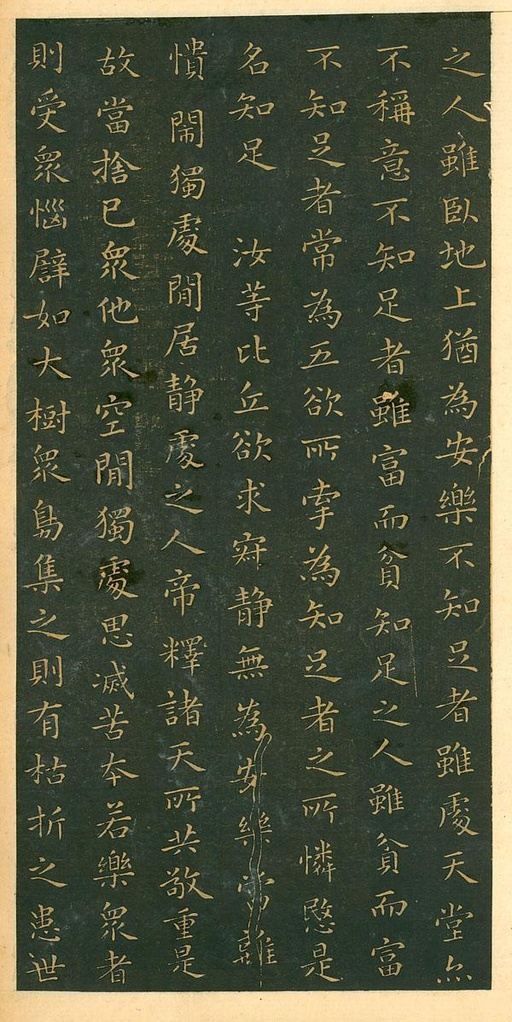 之人雖臥地上猶為安樂不知足者雖處天堂亦
不稱意不知足者雖富而貧知足之人雖貧而富
不知足者常為五欲所牽為知足者之所憐愍是
名知足　汝等比丘欲求寂靜無為安樂當離
憒閙獨處閒居静處之人帝釋諸天所共敬重是
故當捨己眾他眾空閒獨處思滅苦本若樂眾者
則受眾惱譬如大樹眾鳥集之則有枯折之患世